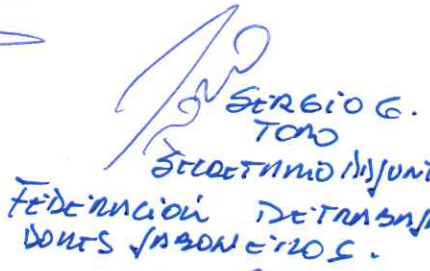 SERGIO G.
TORO
SECRETARIO ADJUNT
FEDERACIÓN DE TRABAJA
DORES JABONEROS.